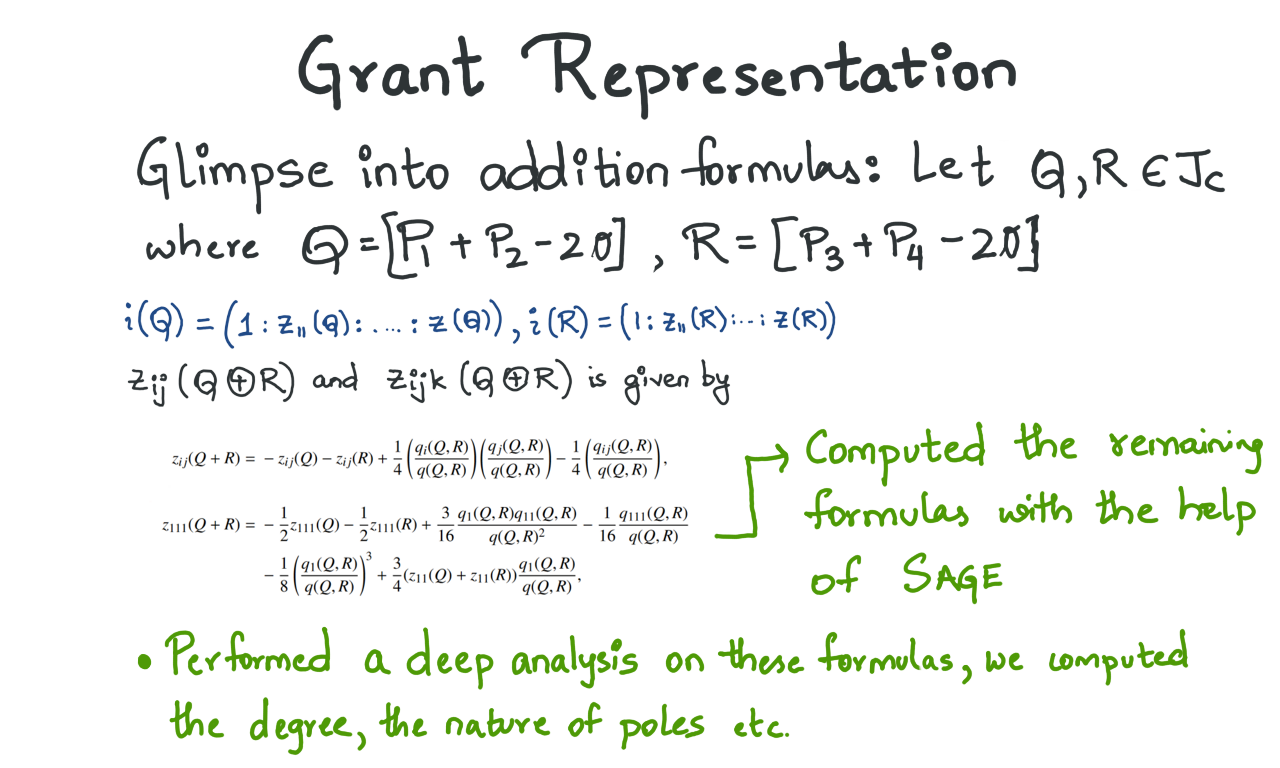 Grant Representation
Glimpse into addition formulas: Let Q, R ∈ J_C
where Q = [P_1 + P_2 - 2∅], R = [P_3 + P_4 - 2∅]
i(Q) = (1 : z_11(Q) : .... : z(Q)), i(R) = (1 : z_11(R) : ... : z(R))
z_ij(Q ⊕ R) and z_ijk(Q ⊕ R) is given by
z_ij(Q + R) = - z_ij(Q) - z_ij(R) + 1/4 (q_i(Q, R)/q(Q, R)) (q_j(Q, R)/q(Q, R)) - 1/4 (q_ij(Q, R)/q(Q, R)),
z_111(Q + R) = - 1/2 z_111(Q) - 1/2 z_111(R) + 3/16 q_1(Q, R)q_11(Q, R)/q(Q, R)^2 - 1/16 q_111(Q, R)/q(Q, R)
- 1/8 (q_1(Q, R)/q(Q, R))^3 + 3/4 (z_11(Q) + z_11(R)) q_1(Q, R)/q(Q, R),
→ Computed the remaining
formulas with the help
of SAGE
• Performed a deep analysis on these formulas, we computed
the degree, the nature of poles etc.